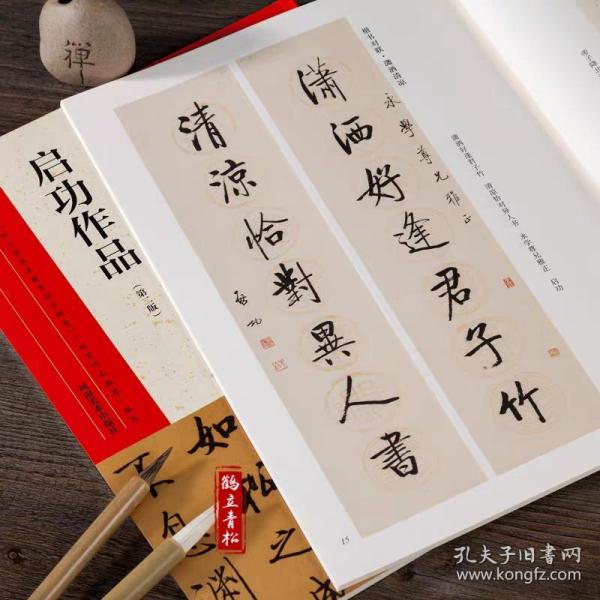 禅
楷书对联·潇洒清凉
潇洒好逢君子竹 清凉恰对异人书 永学尊兄雅正 启功
永學尊兄雅正
瀟洒好逢君子竹
清涼恰對異人書
啟功
15
启功作品
(第二版)
河南美术出版社
如
不息
渊
之
鹤立青松
孔夫子旧书网
www.kongfz.com